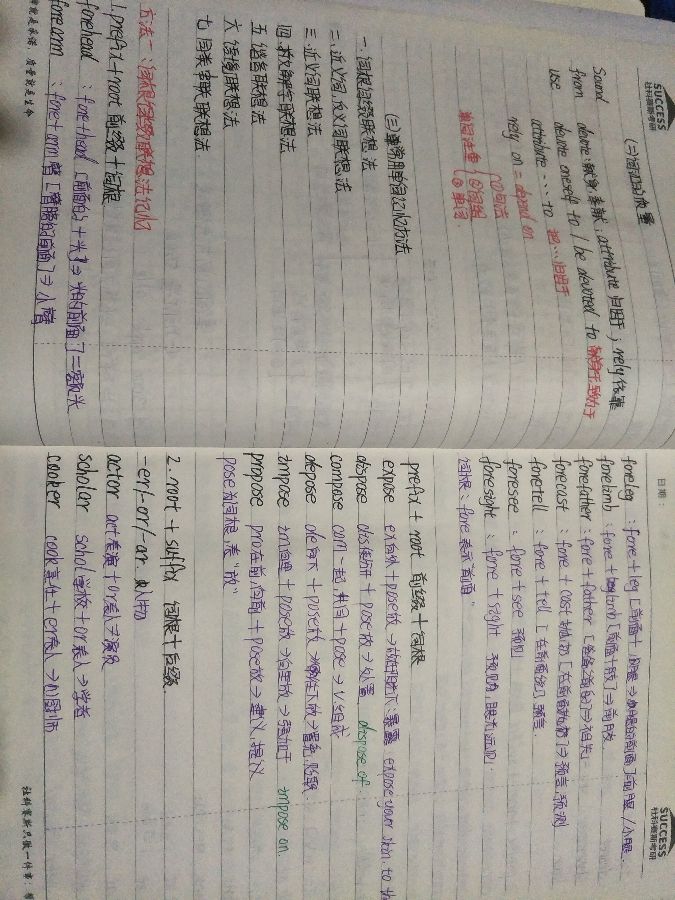 SUCCESS
社科赛斯考研
(二)词汇的重量
Sound
devote:献身,奉献; attribute 归因于; rely 依靠
from devote oneself to / be devoted to 献身于,致力于
use attribute … to 把…归因于
rely on = depend on
单词注重
①词法
②词组
③单词.
(三)常用单词记忆方法
一.词根词缀联想法
二.近义词,反义词联想法
三.近义词联想法
四.拆文解字联想法
五.谐音联想法
六.语境联想法
七.同类串联联想法
方法一:词根词缀联想法记忆
1. prefix + root 前缀+词根
forehead : fore+head [前面的+头]⇒头的前面⇒额头
forearm : fore+arm臂 [臂膀的前面]⇒小臂
就是承诺, 质量就是生命
日期:
SUCCESS
社科赛斯考研
foreleg : fore+leg [前面+腿⇒腿的前面]前腿/小腿.
forelimb : fore+limb [前面+肢]⇒前肢
forefather : fore+father [爸爸之前的]⇒祖先
forecast : fore+cast 抛,扔 [在前面抛扔]⇒预言,预测
foretell : fore+tell [在前面说]预言.
foresee : fore+see 预见
foresight : fore+sight 预见力,眼光远见.
词根: fore 表示"前面"
prefix + root 前缀+词根
expose ex向外+pose放→放在阳光下,暴露 expose your skin to th
dispose dis使分开+pose放→处置 dispose of.
compose com一起,共同+pose→v.组成
depose de向下+pose放→放→罢免
impose im向里+pose放→向里放→强加于 impose on.
propose pro在前,向前+pose放→建议,提议
pose 词根,表"放"
2. root + suffix 词根+后缀.
-er/-or/-ar.
actor act表演+or表人→演员
scholar schol学校+ar表人→学者
cooker cook烹饪+er表人→
社科赛斯只做一件事: